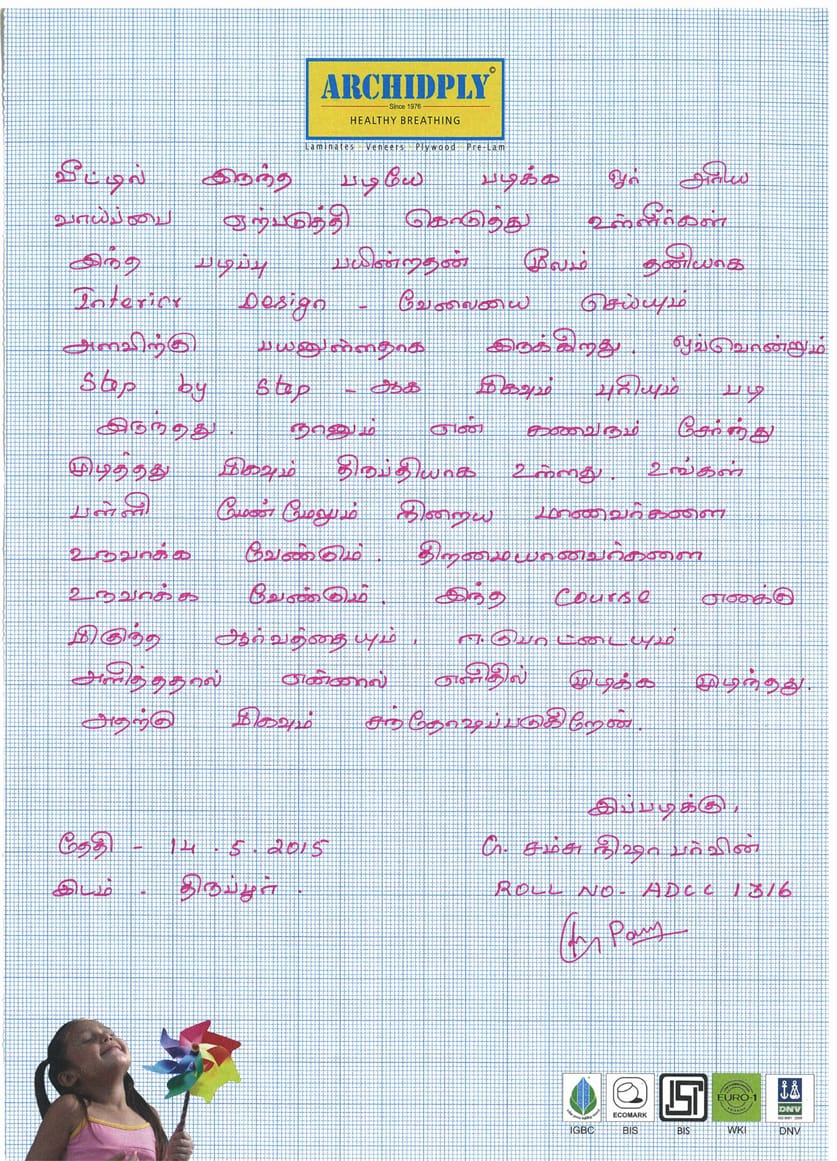 ARCHIDPLY©
Since 1976
HEALTHY BREATHING
Laminates Veneers Plywood Pre-Lam
வீட்டில் இருந்த படியே படிக்க ஓர் அரிய
வாய்ப்பை ஏற்படுத்தி கொடுத்து உள்ளீர்கள்
இந்த படிப்பு பயின்றதன் மூலம் தனியாக
Interior Design - வேலையை செய்யும்
அளவிற்கு பயனுள்ளதாக இருக்கிறது. ஒவ்வொன்றும்
Step by Step - ஆக மிகவும் புரியும் படி
இருந்தது. நானும் என் கணவரும் சேர்ந்து
முடித்தது மிகவும் திருப்தியாக உள்ளது. உங்கள்
பள்ளி மேன்மேலும் நிறைய மாணவர்களை
உருவாக்க வேண்டும். திறமையானவர்களை
உருவாக்க வேண்டும். இந்த Course எனக்கு
மிகுந்த ஆர்வத்தையும்,
அளித்ததால் என்னால் எளிதில் முடிக்க முடிந்தது.
அதற்கு மிகவும் சந்தோஷப்படுகிறேன்.
இப்படிக்கு,
தேதி - 14.5.2015
சம்சு நிஷா பர்வின்
இடம் - திருப்பூர்.
ROLL NO- ADCC 1316
IGBC
ECOMARK
BIS
BIS
EURO-1
WKI
DNV
DNV